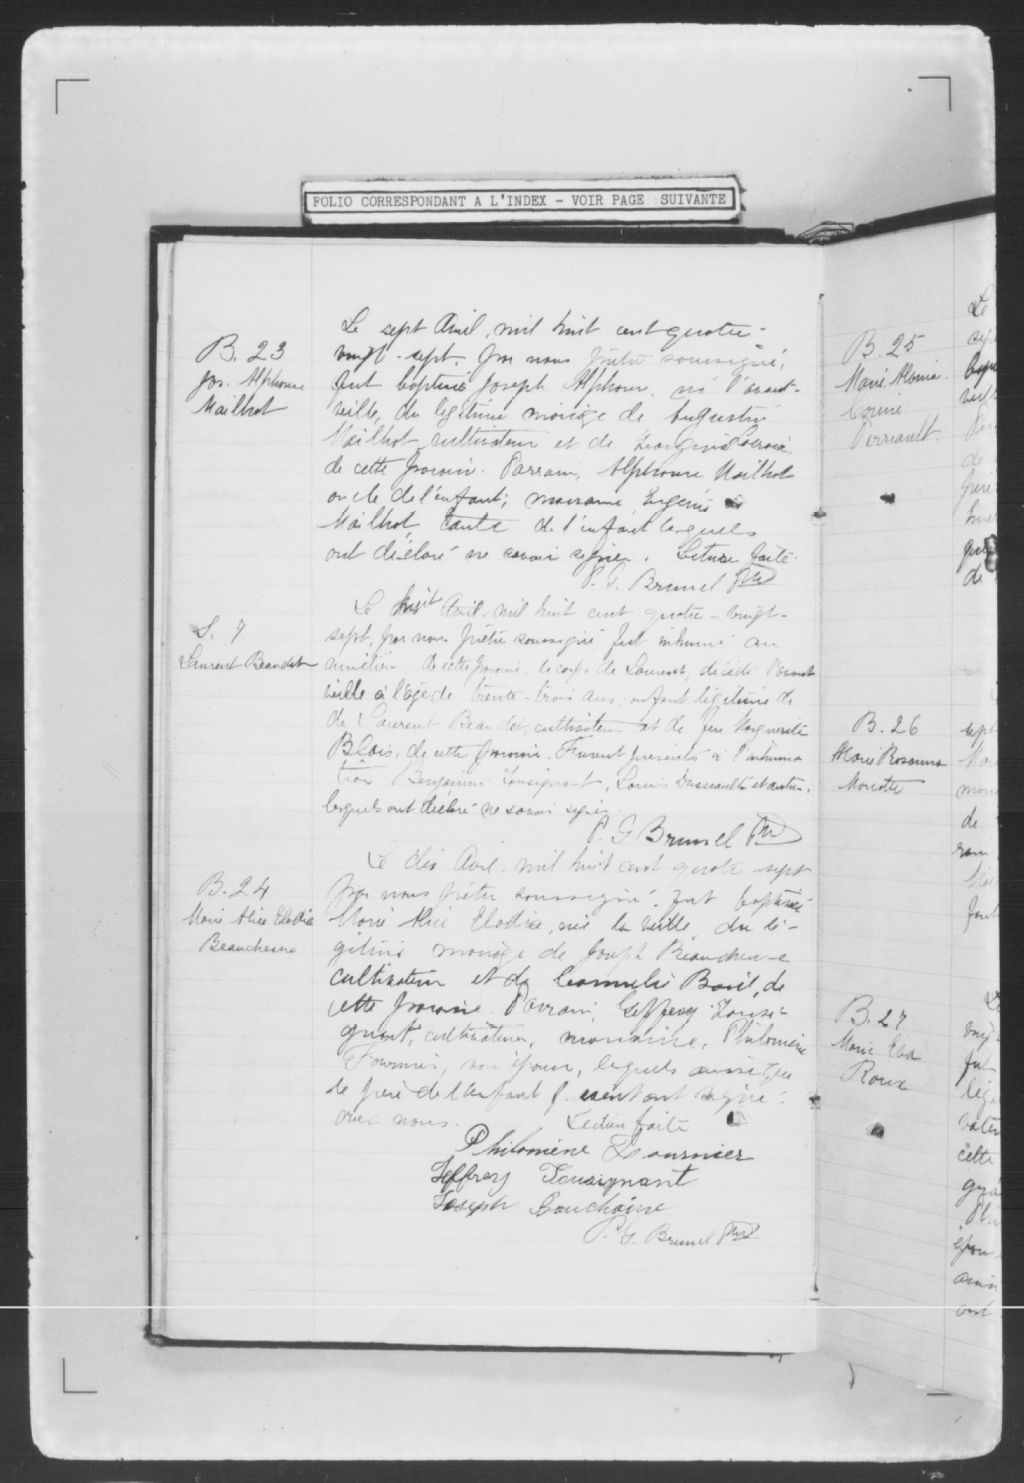 FOLIO CORRESPONDANT A L'INDEX - VOIR PAGE SUIVANTE
B. 23
Jos. Alphonse
Mailhot
Le sept Avril, mil huit cent quatre-
vingt-sept, par nous prêtre soussigné,
fut baptisé Joseph Alphonse, né l'avant-
veille, du légitime mariage de Augustin
Mailhot, cultivateur et de Georgina
de cette paroisse. Parrain, Alphonse Mailhot
oncle de l'enfant; marraine Eugénie
Mailhot, tante de l'enfant lesquels
ont déclaré ne savoir signer. Lecture faite.
P. G. Brunel Ptre
S. 7
Laurent Beaudet
Le huit Avril, mil huit cent quatre-vingt-
sept, par nous prêtre soussigné fut inhumé au
cimetière de cette paroisse le corps de Laurent, décédé l'avant
veille à l'âge de trente-trois ans, enfant légitime de
de Laurent Beaudet, cultivateur et de feu Marguerite
Blais, de cette paroisse. Furent présents à l'inhuma
tion Benjamin Tousignant, Louis Dusseault et autres,
lesquels ont déclaré ne savoir signer.
P. G. Brunel Ptre
B. 24
Marie Alice Elodia
Beauchesne
Le dix Avril, mil huit cent quatre sept
par nous prêtre soussigné, fut baptisée
Marie Alice Elodia, née la veille, du lé-
gitime mariage de Joseph Beauchesne
cultivateur et de Cornélie Baril, de
cette paroisse. Parrain, Geffrey Tousi-
gnant, cultivateur, marraine, Philomène
Fournier, son épouse, lesquels aussi que
le père de l'enfant présent ont signé
avec nous. Lecture faite
Philomène Fournier
Jeffrey Tousignant
Joseph Bauchaine
P. G. Brunel Ptre
B. 25
Marie Alvina
Corine
Perreault
B. 26
Marie Rosanna
Mariotte
B. 27
Marie Eva
Roux